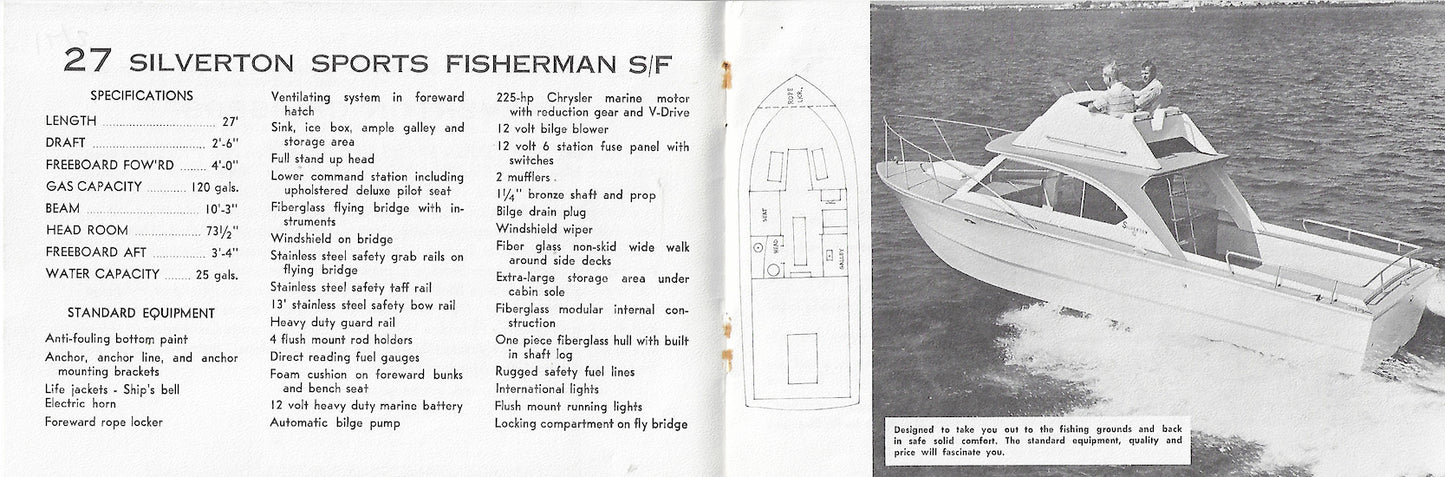 27 SILVERTON SPORTS FISHERMAN S/F
SPECIFICATIONS
LENGTH ........ 27'
DRAFT ........ 2'-6"
FREEBOARD FOW'RD ........ 4'-0"
GAS CAPACITY ........ 120 gals.
BEAM ........ 10'-3"
HEAD ROOM ........ 73½"
FREEBOARD AFT ........ 3'-4"
WATER CAPACITY ........ 25 gals.
STANDARD EQUIPMENT
Anti-fouling bottom paint
Anchor, anchor line, and anchor
mounting brackets
Life jackets - Ship's bell
Electric horn
Foreward rope locker
Ventilating system in foreward
hatch
Sink, ice box, ample galley and
storage area
Full stand up head
Lower command station including
upholstered deluxe pilot seat
Fiberglass flying bridge with in-
struments
Windshield on bridge
Stainless steel safety grab rails on
flying bridge
Stainless steel safety taff rail
13' stainless steel safety bow rail
Heavy duty guard rail
4 flush mount rod holders
Direct reading fuel gauges
Foam cushion on foreward bunks
and bench seat
12 volt heavy duty marine battery
Automatic bilge pump
225-hp Chrysler marine motor
with reduction gear and V-Drive
12 volt bilge blower
12 volt 6 station fuse panel with
switches
2 mufflers .
1¼" bronze shaft and prop
Bilge drain plug
Windshield wiper
Fiber glass non-skid wide walk
around side decks
Extra-large storage area under
cabin sole
Fiberglass modular internal con-
struction
One piece fiberglass hull with built
in shaft log
Rugged safety fuel lines
International lights
Flush mount running lights
Locking compartment on fly bridge
ROPE
LKR.
SEAT
HEAD
GALLEY
Silverton
Designed to take you out to the fishing grounds and back
in safe solid comfort. The standard equipment, quality and
price will fascinate you.